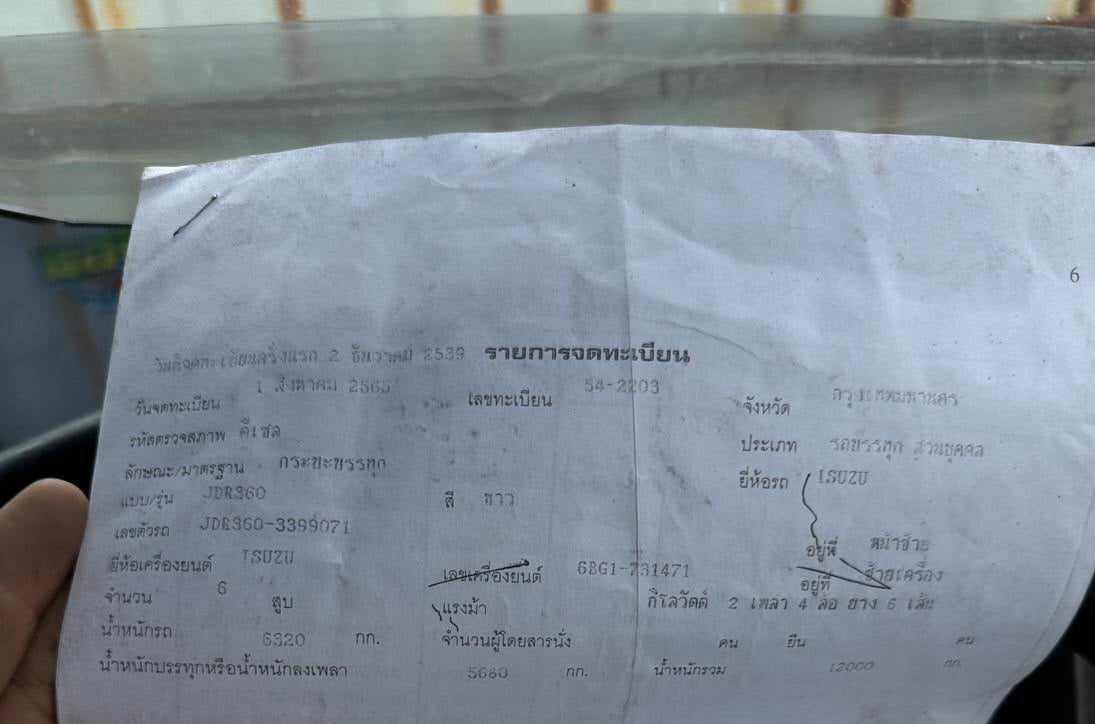 6
วันที่จดทะเบียนครั้งแรก 2 ธันวาคม 2539 รายการจดทะเบียน
วันจดทะเบียน 1 สิงหาคม 2565 เลขทะเบียน 54-2203 จังหวัด กรุงเทพมหานคร
รหัสตรวจสภาพ ดีเซล ประเภท รถบรรทุก ส่วนบุคคล
ลักษณะ/มาตรฐาน กระบะบรรทุก ยี่ห้อรถ ISUZU
แบบ/รุ่น JDR360 สี ขาว
เลขตัวรถ JDR360-3399071 อยู่ที่ หน้าซ้าย
ยี่ห้อเครื่องยนต์ ISUZU เลขเครื่องยนต์ 6BG1-731471 อยู่ที่ ซ้ายเครื่อง
จำนวน 6 สูบ แรงม้า กิโลวัตต์ 2 เพลา 4 ล้อ ยาง 6 เส้น
น้ำหนักรถ 6320 กก. จำนวนผู้โดยสารนั่ง คน ยืน คน
น้ำหนักบรรทุกหรือน้ำหนักลงเพลา 5680 กก. น้ำหนักรวม 12000 กก.